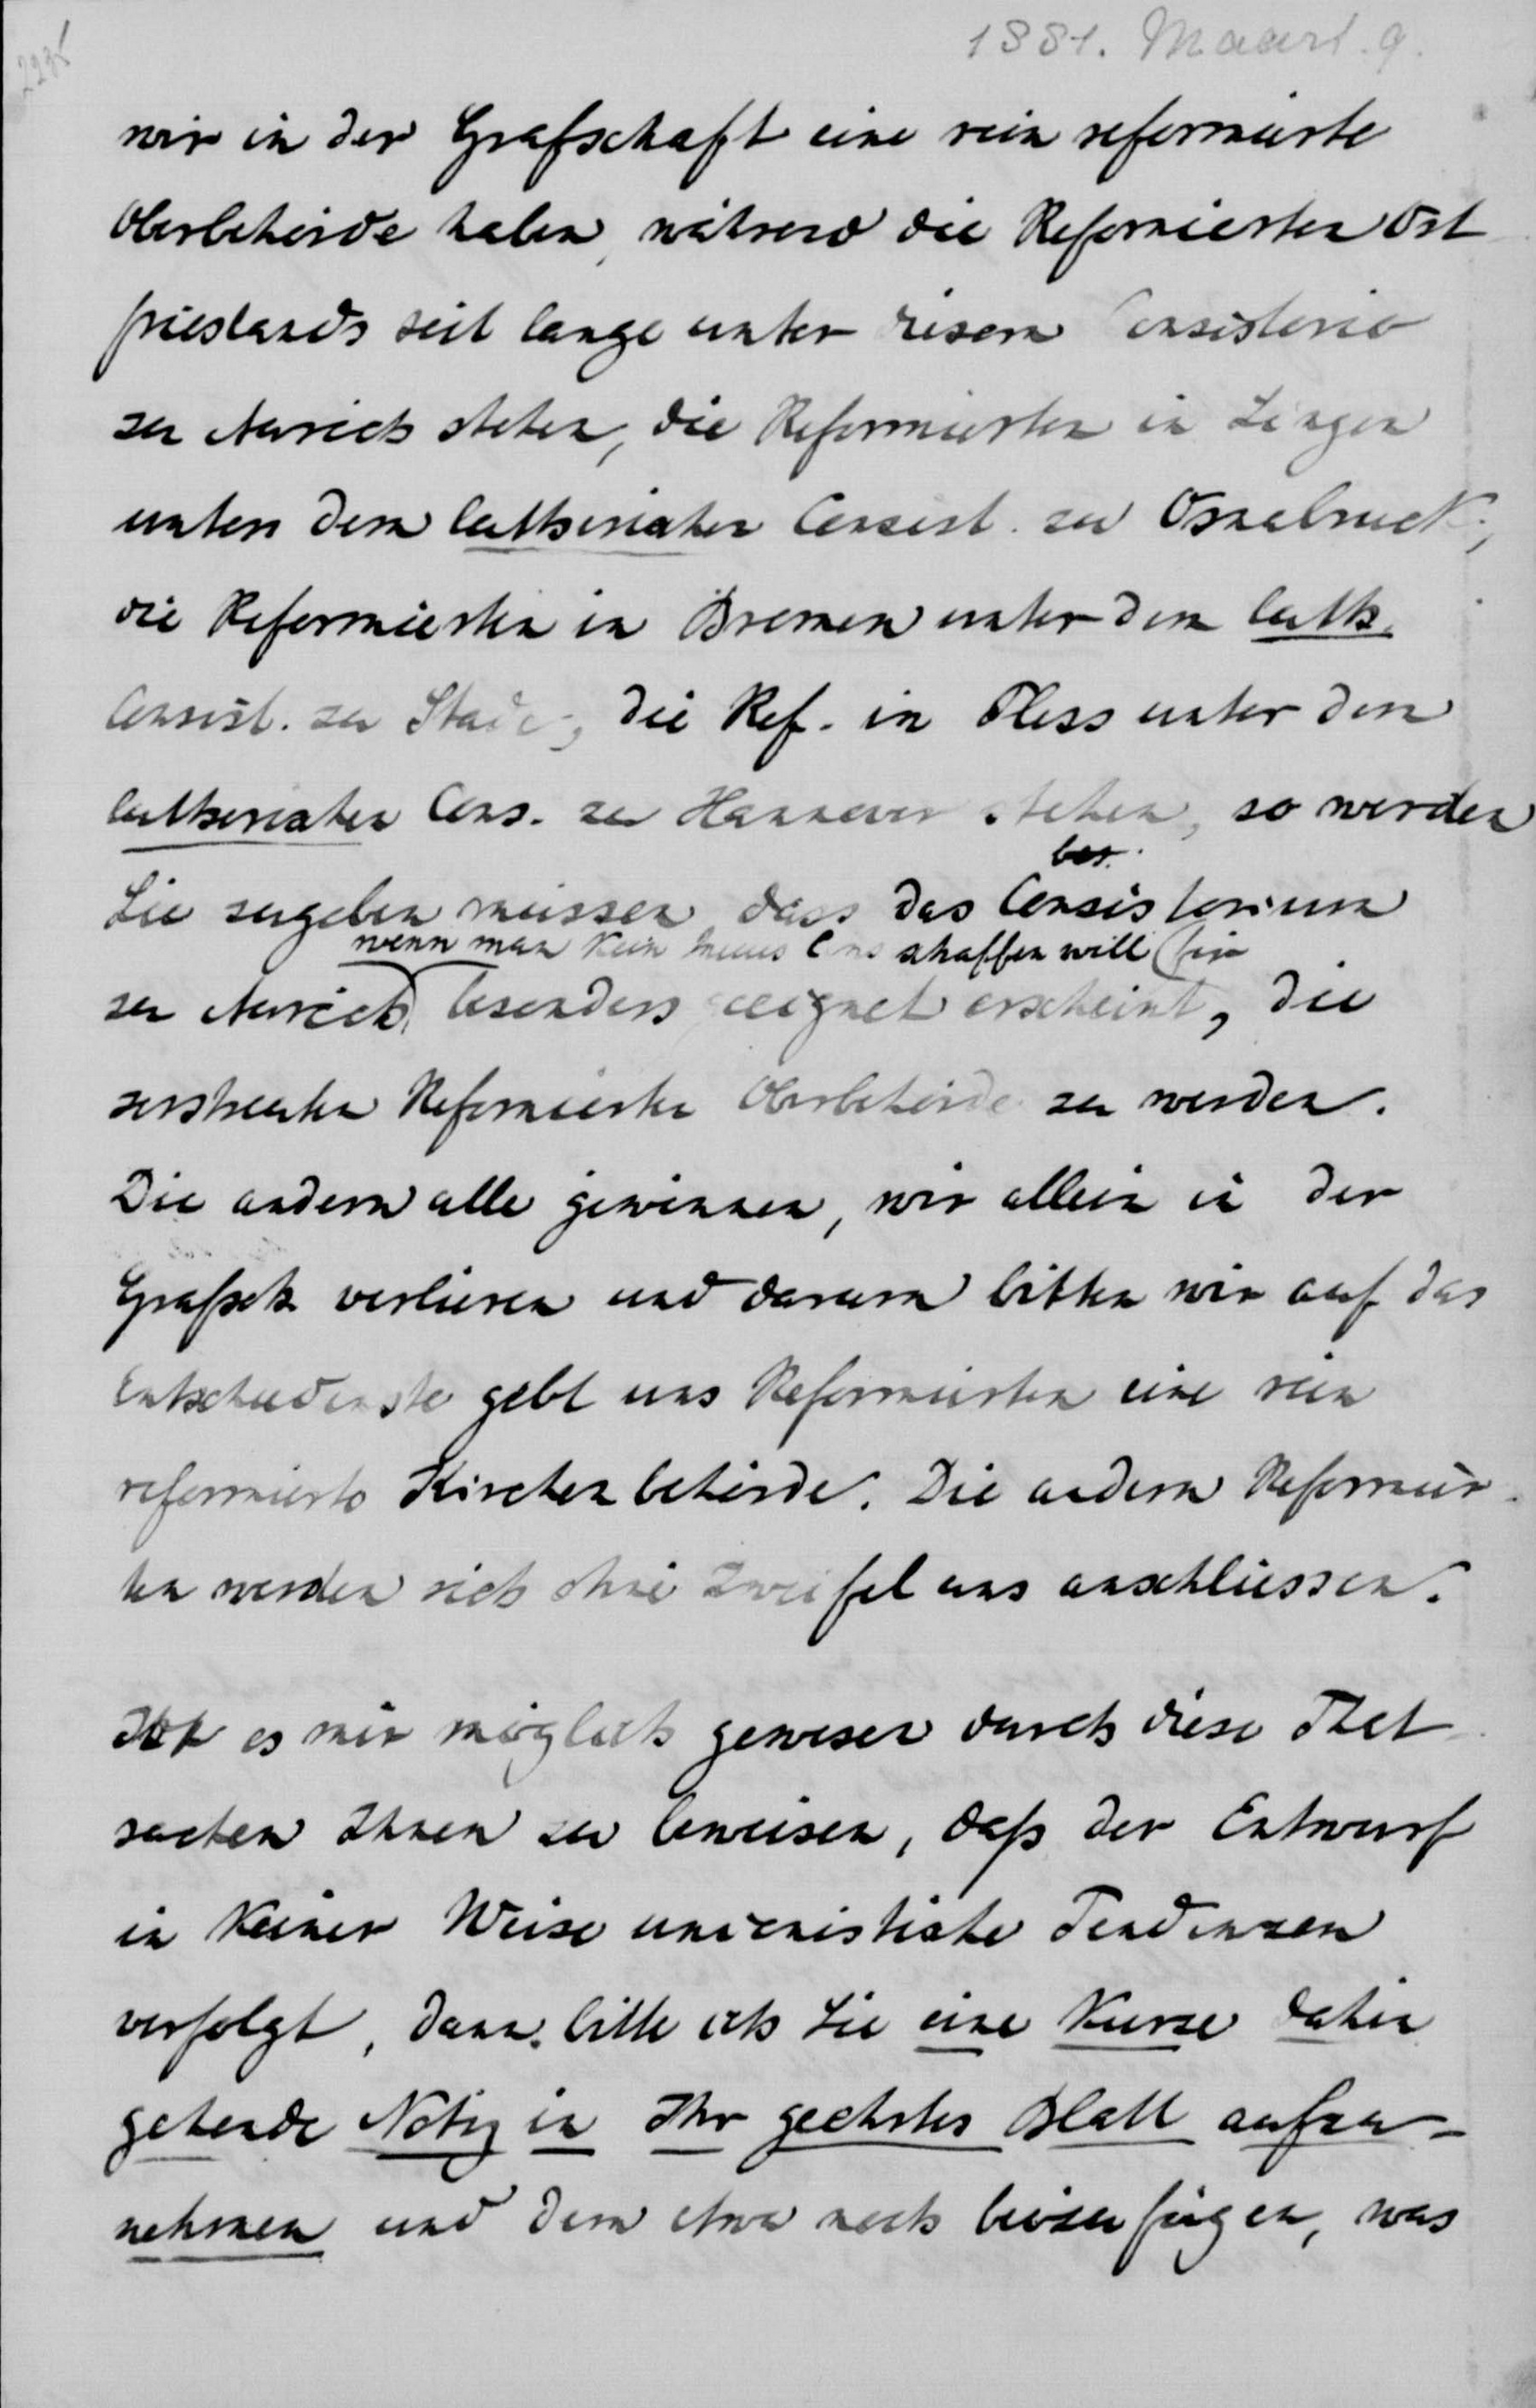 1881. Maart. 9.
wir in der Grafschaft eine rein reformierte
Oberbehörde haben, während die Reformierten Ost
frieslands seit lange unter diesem Consistorio
zu Aurich stehen, die Reformierten in Lingen
unter dem lutherischen Consist. zu Osnabruck,
die Reformierten in Bremen unter dem luth.
Consist. zu Stade, die Ref. in Pless unter dem
lutherischen Cons. zu Hannover stehen, so werden
bes.
Sie zugeben müssen dass das Consistorium
wenn man kein neues Cons schaffen will für
zu Aurich besonders geeignet erscheint, die
zerstreuten Reformierte Oberbehörde zu werden.
Die andern alle gewinnen, wir allein in der
Grafsch. verlieren und darum bitten wir auf das
Entschiedenste gebt uns Reformierten eine rein
reformierte Kirchenbehörde. Die andern Reformier
ten werden sich ohne Zweifel uns anschliessen.
Ist es mir möglich gewesen durch diese That
sachen Ihnen zu beweisen, daß der Entwurf
in keiner Weise unionistische Tendenzen
verfolgt, dann bitte ich Sie eine kurze dahin
gehende Notiz in Ihr geehrtes Blatt aufzu-
nehmen und dem etwa noch beizufügen, was